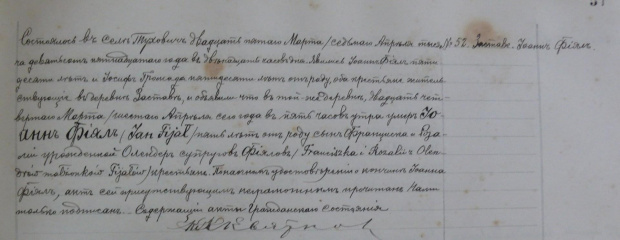 № 52. Заставе. Іоаннъ Фіялъ.
Состоялось въ селѣ Туховичъ двадцать пятаго Марта / седьмаго Апрѣля тыся-
ча девятьсотъ пятнадцатаго года въ двѣнадцать часовъ дня. Явились Іоаннъ Фіялъ пяти-
десяти лѣтъ и Іосифъ пятидесяти лѣтъ отъ роду, оба крестьяне житель-
ствующіе въ деревнѣ Заставѣ, и объявили что въ той же деревнѣ, двадцать чет-
вертаго Марта / шестаго Апрѣля сего года въ пять часовъ утра умеръ Іо-
аннъ Фіялъ / Jan Fijał / пять лѣтъ отъ роду сынъ Франциска и Роза-
ліи урожденной Олендеръ супруговъ Фіяловъ / Franciszka i Rozalii Olen-
małżonków Fijałów / крестьянъ. По настоящемъ удостовѣреніи о кончинѣ Іоанна
Фіялъ, актъ сей присутствующимъ неграмотнымъ прочитанъ Нами
только подписанъ. Содержащій акты Гражданскаго состоянія